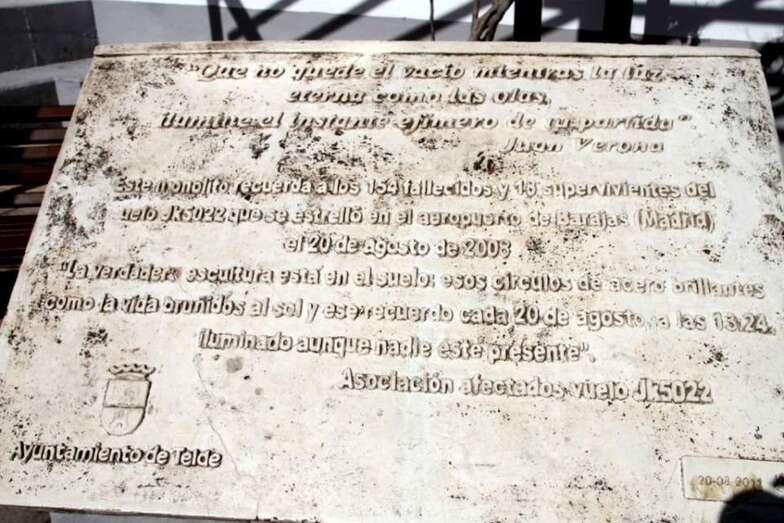 "Que no quede el vacio mientras la luz
eterna como las olas,
ilumine el instante efimero de tu partida"
Juan Verona
Este monolito recuerda a los 154 fallecidos y 18 supervivientes del
vuelo JK5022 que se estrelló en el aeropuerto de Barajas (Madrid)
el 20 de Agosto de 2008
"La verdadera escultura está en el suelo: esos circulos de acero brillantes
como la vida bruñidos al sol y ese recuerdo cada 20 de agosto, a las 13:24
iluminado aunque nadie esté presente".
Asociación afectados vuelo JK5022
Ayuntamiento de Telde
20-08-2011